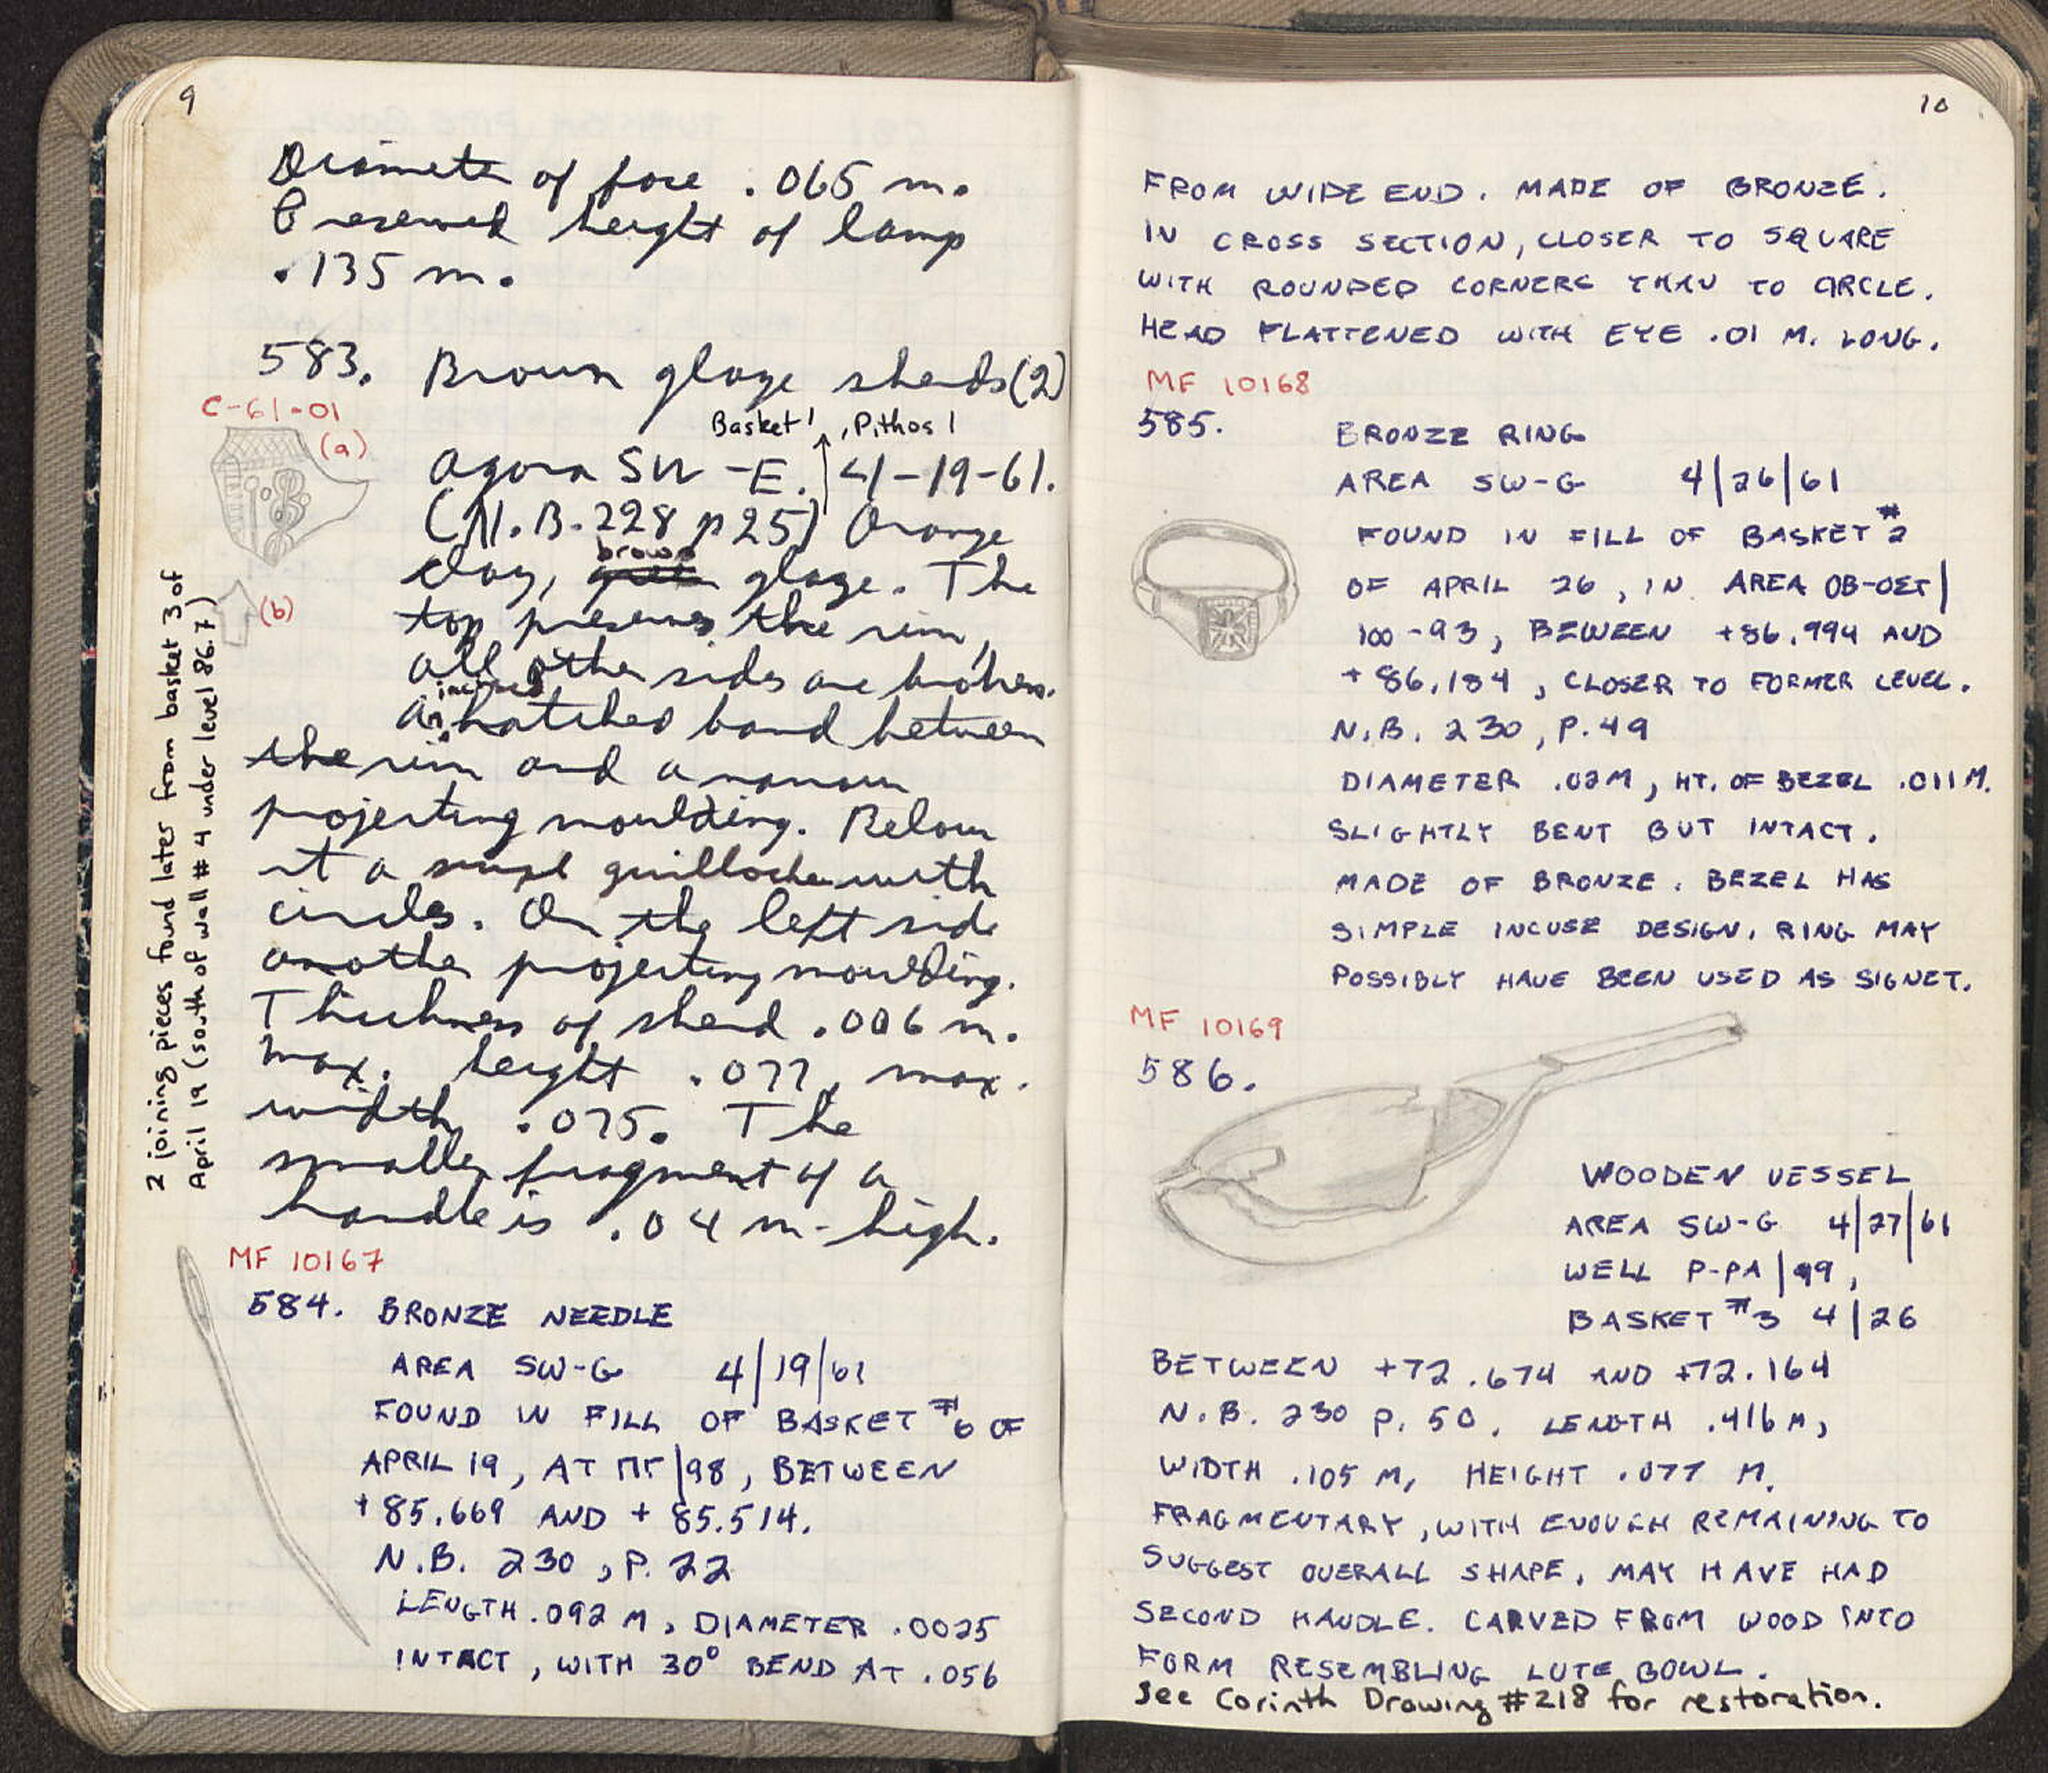 9
Diameter of face .065 m.
Preserved height of lamp
.135 m.
583. Brown glaze sherds (2)
C-61-01
(a)
(b)
Basket 1, Pithos 1
Agora SW-E. 4-19-61.
(N.B. 228 p 25) Orange
brown
clay, glaze. The
top preserves the rim,
all other sides are broken.
incised
A hatched band between
the rim and a narrow
projecting moulding. Below
it a guilloche with
circles. On the left side
another projecting moulding.
Thickness of sherd .006 m.
max. height .077, max.
width .075. The
smaller fragment of a
handle is .04 m. high.
2 joining pieces found later from basket 3 of
April 19 (south of wall #4 under level 86.7)
MF 10167
584. BRONZE NEEDLE
AREA SW-G 4/19/61
FOUND IN FILL OF BASKET #6 OF
APRIL 19, AT ΠΓ/98, BETWEEN
+85.669 AND +85.514.
N.B. 230, P. 22
LENGTH .092 M, DIAMETER .0025
INTACT, WITH 30° BEND AT .056
10
FROM WIDE END. MADE OF BRONZE.
IN CROSS SECTION, CLOSER TO SQUARE
WITH ROUNDED CORNERS THAN TO CIRCLE.
HEAD FLATTENED WITH EYE .01 M. LONG.
MF 10168
585. BRONZE RING
AREA SW-G 4/26/61
FOUND IN FILL OF BASKET #2
OF APRIL 26, IN AREA OB-OET/
100-93, BEWEEN +86.994 AND
+86.184, CLOSER TO FORMER LEVEL.
N.B. 230, P. 49
DIAMETER .02M, HT. OF BEZEL .011 M.
SLIGHTLY BENT BUT INTACT.
MADE OF BRONZE. BEZEL HAS
SIMPLE INCUSE DESIGN. RING MAY
POSSIBLY HAVE BEEN USED AS SIGNET.
MF 10169
586.
WOODEN VESSEL
AREA SW-G 4/27/61
WELL P-PA/99,
BASKET #3 4/26
BETWEEN +72.674 AND +72.164
N.B. 230 P. 50. LENGTH .416 M,
WIDTH .105 M, HEIGHT .077 M.
FRAGMENTARY, WITH ENOUGH REMAINING TO
SUGGEST OVERALL SHAPE, MAY HAVE HAD
SECOND HANDLE. CARVED FROM WOOD INTO
FORM RESEMBLING LUTE BOWL.
See Corinth Drawing #218 for restoration.